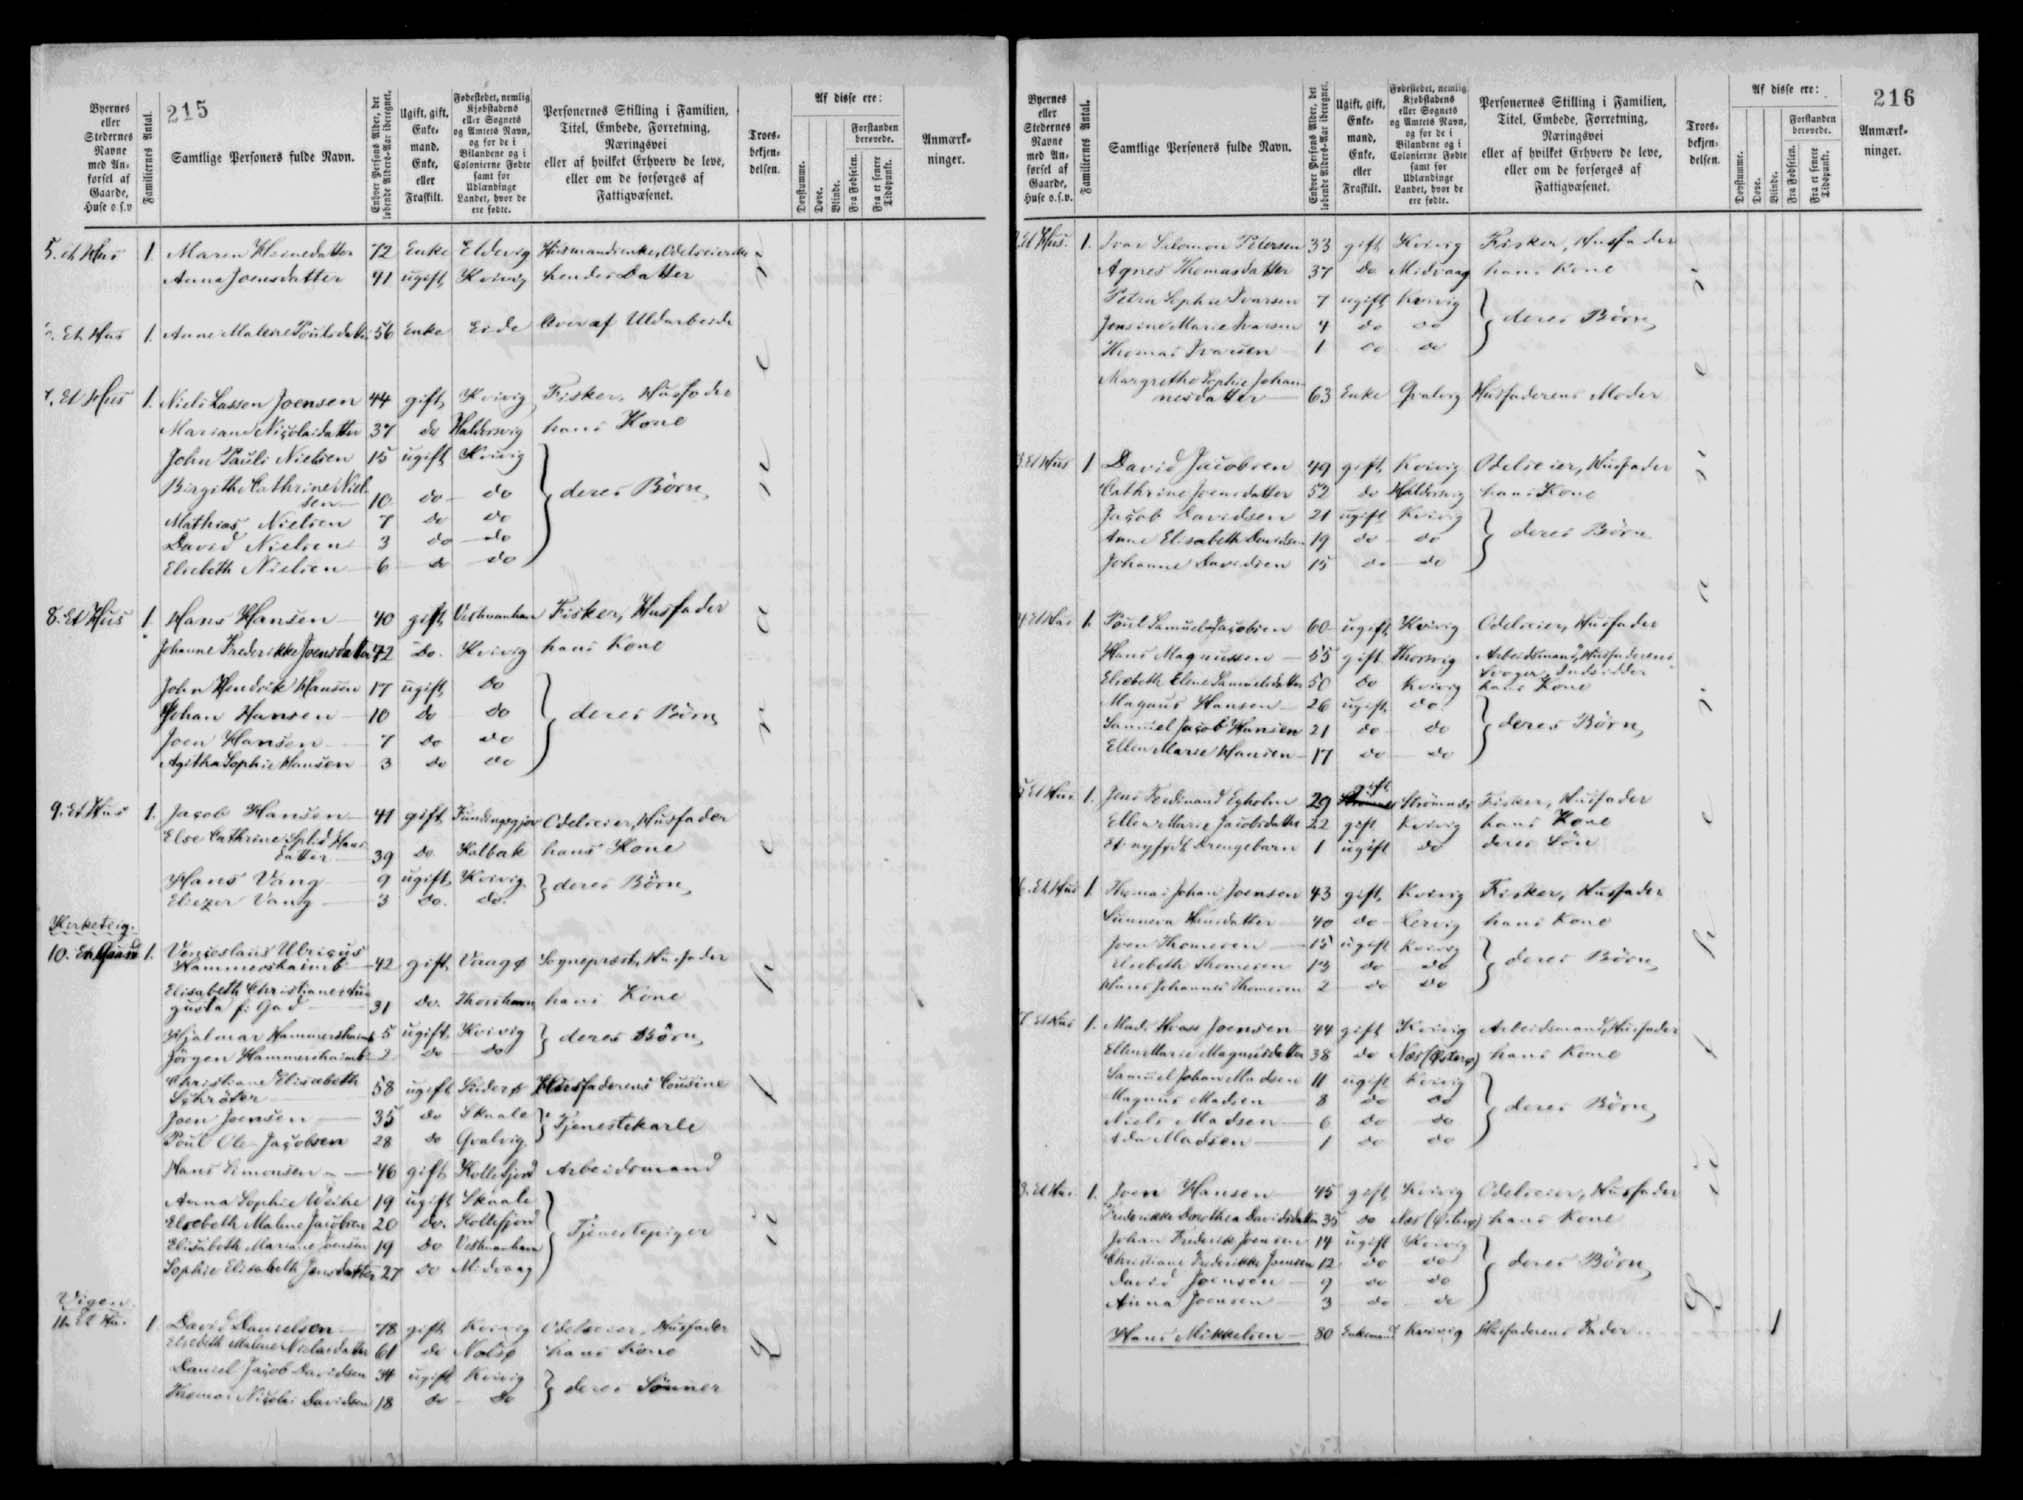 215
Byernes eller Stedernes Navne med Anførsel af Gaarde, Huse o.s.v
Familiernes Antal.
Samtlige Personers fulde Navn.
Enhver Persons Alder, det løbende Alders-Aar iberegnet.
Ugift, gift, Enkemand, Enke, eller Fraskilt.
Fødestedet, nemlig Kjøbstadens eller Sognets og Amtets Navn, og for de i Bilandene og i Colonierne Fødte samt for Udlændinge Landet, hvor de ere fødte.
Personernes Stilling i Familien, Titel, Embede, Forretning, Næringsvei eller af hvilket Erhverv de leve, eller om de forsørges af Fattigvæsenet.
Troesbekjendelsen.
Af disse ere:
Døvstumme.
Døve.
Blinde.
Forstanden berøvede.
Fra Fødselen.
Fra et senere Tidspunkt.
Anmærkninger.
5. et Hus 1. Maren Heinedatter 72 Enke Eldevig
Anna Joensdatter 41 ugift Kvivig hendes Datter
Et Hus 1. Anne Malene Poulsdatter 56 Enke Eide lever af Uldarbeide
7. Et Hus 1. Niels Lassen Joensen 44 gift Kvivig Fisker, Husfader
Mariane Nicolaidatter 37 do Haldersvig hans Kone
John Pauli Nielsen 15 ugift Kvivig
Birgithe Cathrine Nielsen 10 do do deres Børn
Mathias Nielsen 7 do do
David Nielsen 3 do do
Elsebeth Nielsen 6 do do
8. Et Hus 1. Hans Hansen 40 gift Vestmanhavn Fisker, Husfader
Johanne Frederikke Joensdatter 42 do. Kvivig hans Kone
John Hendrik Hansen 17 ugift do
Johan Hansen 10 do do deres Børn
Joen Hansen 7 do do
Agitha Sophie Hansen 3 do do
9. Et Hus 1. Jacob Hansen 41 gift Fundingsgjov Odelseier, Husfader
Else Cathrine Splid Hansdatter 39 do. Kalbak hans Kone
Hans Vang 9 ugift Kvivig deres Børn
Eliezer Vang 3 do. do.
Kirketeig.
10. En Gaard 1. Venceslaus Ulricus Hammershaimb 42 gift Vaagø Sognepræst, Husfader
Elisabeth Christiane Augusta f. Gad 31 do. Thorshavn hans Kone
Hjalmar Hammershaimb 5 ugift Kvivig deres Børn
Jörgen Hammershaimb 2 do do
Christiane Elisabeth Schröter 58 ugift Suderø Husfaderens Cousine
Joen Joensen 35 do Skaale Tjenestekarle
Poul Ole Jacobsen 28 do Qvalvig
Hans Simonsen 46 gift Kollefjord Arbeidsmand
Anna Sophie Weihe 19 ugift Skaale
Elsebeth Malene Jacobsen 20 do. Kollefjord Tjenestepiger
Elisabeth Mariane Joensen 19 do Vestmanhavn
Sophie Elisabeth Jensdatter 27 do Midvaag
Vigen.
11. Et Hus 1 David Danielsen 78 gift Kvivig Odelseier, Husfader
Elsebeth Malene Nielsdatter 61 do Nolsø hans Kone
Daniel Jacob Davidsen 34 ugift Kvivig deres Sönner
Thomas Nicolai Davidsen 18 do do
Lutheranere
216
Byernes eller Stedernes Navne med Anførsel af Gaarde, Huse o.s.v.
Familiernes Antal.
Samtlige Personers fulde Navn.
Enhver Persons Alder, det løbende Alders-Aar iberegnet.
Ugift, gift, Enkemand, Enke, eller Fraskilt.
Fødestedet, nemlig Kjøbstadens eller Sognets og Amtets Navn, og for de i Bilandene og i Colonierne Fødte samt for Udlændinge Landet, hvor de ere fødte.
Personernes Stilling i Familien, Titel, Embede, Forretning, Næringsvei eller af hvilket Erhverv de leve, eller om de forsørges af Fattigvæsenet.
Troesbekjendelsen.
Af disse ere:
Døvstumme.
Døve.
Blinde.
Forstanden berøvede.
Fra Fødselen.
Fra et senere Tidspunkt.
Anmærkninger.
Et Hus. 1. Ivar Salomon Petersen 33 gift Kvivig Fisker, Husfader
Agnes Thomasdatter 37 do Midvaag hans Kone
Petra Sophie Ivarsen 7 ugift Kvivig
Jensine Marie Ivarsen 4 do do deres Börn
Thomas Ivarsen 1 do do
Margrethe Sophie Johannesdatter 63 Enke Qvalvig Husfaderens Moder
Et Hus 1 David Jacobsen 49 gift Kvivig Odelseier, Husfader
Cathrine Joensdatter 52 do Haldersvig hans Kone
Jacob Davidsen 21 ugift Kvivig
Anne Elisabeth Davidsen 19 do do deres Börn
Johanne Davidsen 15 do do
Et Hus 1. Poul Samuel Jacobsen 60 ugift Kvivig Odelseier, Husfader
Hans Magnussen 55 gift Thorsvig Arbeidsmand, Husfaderens Svoger, Indsidder
Elsebeth Elene Samuelsdatter 50 do Kvivig hans Kone
Magnus Hansen 26 ugift do
Samuel Jacob Hansen 21 do do deres Börn
Ellen Marie Hansen 17 do do
Et Hus 1. Jens Ferdinand Egholm 29 gift Strömnæs Fisker, Husfader
Ellen Marie Jacobsdatter 22 gift Kvivig hans Kone
Et nyfødt Drengebarn 1 ugift do deres Sön
Et Hus 1 Thomas Johan Joensen 43 gift Kvivig Fisker, Husfader
Sunneva Hansdatter 40 do Lervig hans Kone
Joen Thomesen 15 ugift Kvivig
Elsebeth Thomesen 13 do do deres Börn
Hans Johannes Thomesen 2 do do
7 Et Hus 1. Mads Joensen 44 gift Kvivig Arbeidsmand, Husfader
Ellen Marie Magnusdatter 38 do Næs (Østerø) hans Kone
Samuel Johan Madsen 11 ugift Kvivig
Magnus Madsen 8 do do deres Börn
Niels Madsen 6 do do
Ada Madsen 1 do do
8. Et Hus 1. Joen Hansen 45 gift Kvivig Odelseier, Husfader
Frederikke Dorothea Davidsdatter 35 do Næs (Österø) hans Kone
Johan Frederik Joensen 14 ugift Kvivig
Christiane Frederikke Joensen 12 do do deres Börn
David Joensen 9 do do
Anna Joensen 3 do do
Hans Mikkelsen 80 Enkemand Kvivig Husfaderens Fader 1
Lutheranere